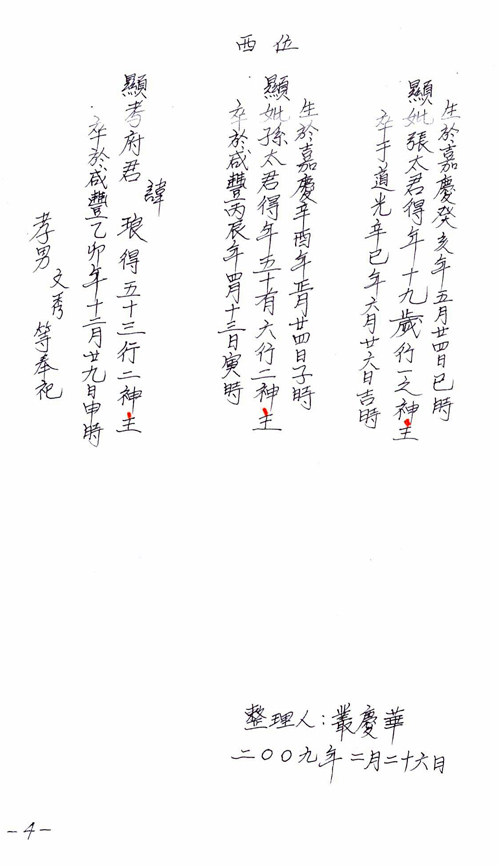 西位
生於嘉慶癸亥年五月廿四日巳時
顯妣張太君得年十九歲行一之神主
卒于道光辛巳年六月廿六日吉時
生於嘉慶辛酉年正月廿四日子時
顯妣孫太君得年五十有六行二神主
卒於咸豐丙辰年四月十三日寅時
顯考府君諱琅得五十三行二神主
卒於咸豐乙卯年十二月廿九日申時
孝男文秀等奉祀
整理人：叢慶華
二〇〇九年二月二十六日
-4-